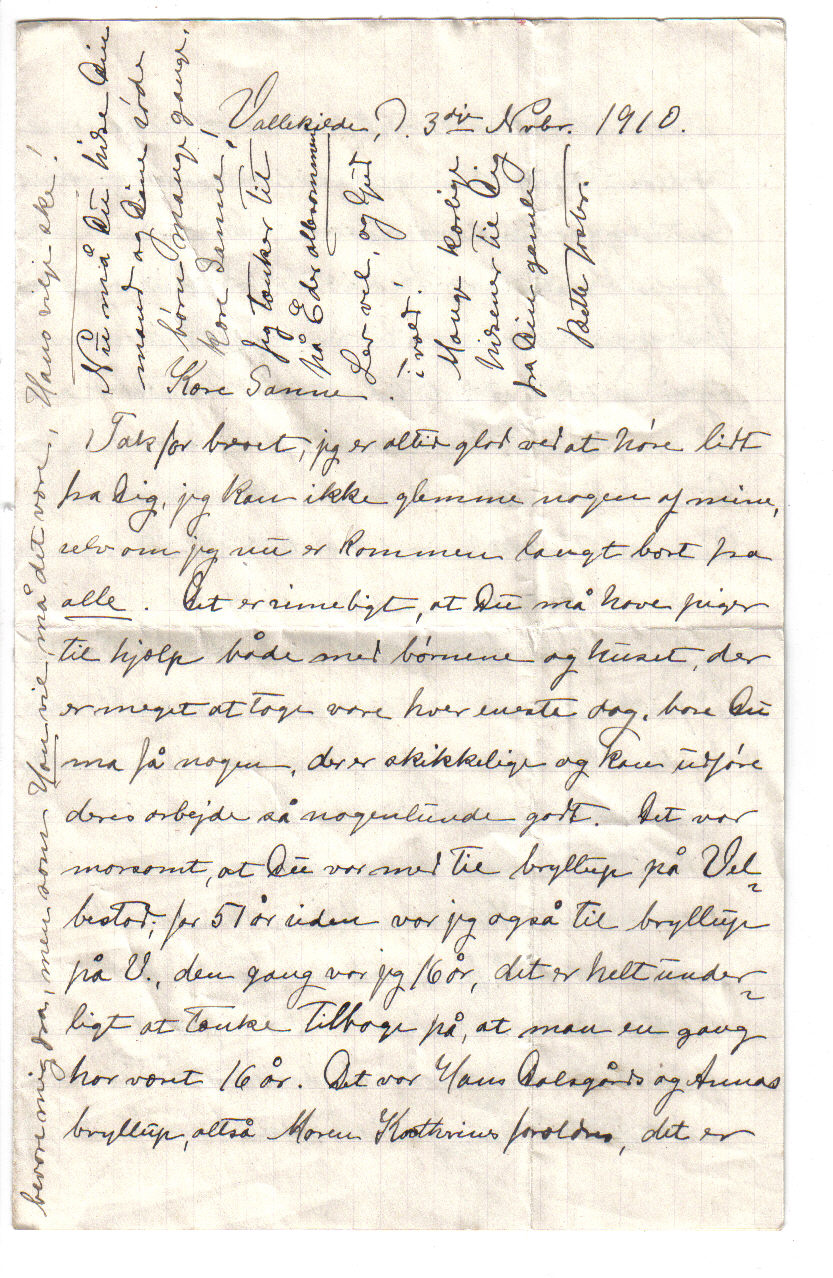 Vallekilde, D. 3die Novbr. 1910.
Kære Sanne!
Tak for brevet, jeg er altid glad ved at høre lidt
fra Dig, jeg kan ikke glemme nogen af mine,
selv om jeg nu er kommen langt bort fra
alle. Det er rimeligt, at Du må have piger
til hjælp både med børnene og huset, der
er meget at tage vare hver eneste dag, bare Du
ma få nogen, der er skikkelige og kan udføre
deres arbejde så nogenlunde godt. Det var
morsomt, at Du var med til bryllup på Vel-
bestad; for 51 år siden var jeg også til bryllup
på V., den gang var jeg 16 år, det er helt under-
ligt at tænke tilbage på, at man en gang
har været 16 år. Det var Hans Dalsgårds og Annas
bryllup, altså Maren Kathrines forældre, det er
bevare mig fra, men som Han vil, må det være, Hans vilje ske!
Nu må Du hilse Din
mand og Dine søde
børn mange gange,
kære Sanne!
Jeg tænker tit
på Eder allesammen
Lev vel, og Gud
i vold!
Mange kærlige
hilsener til Dig
fra Din gamle
Bette faster.